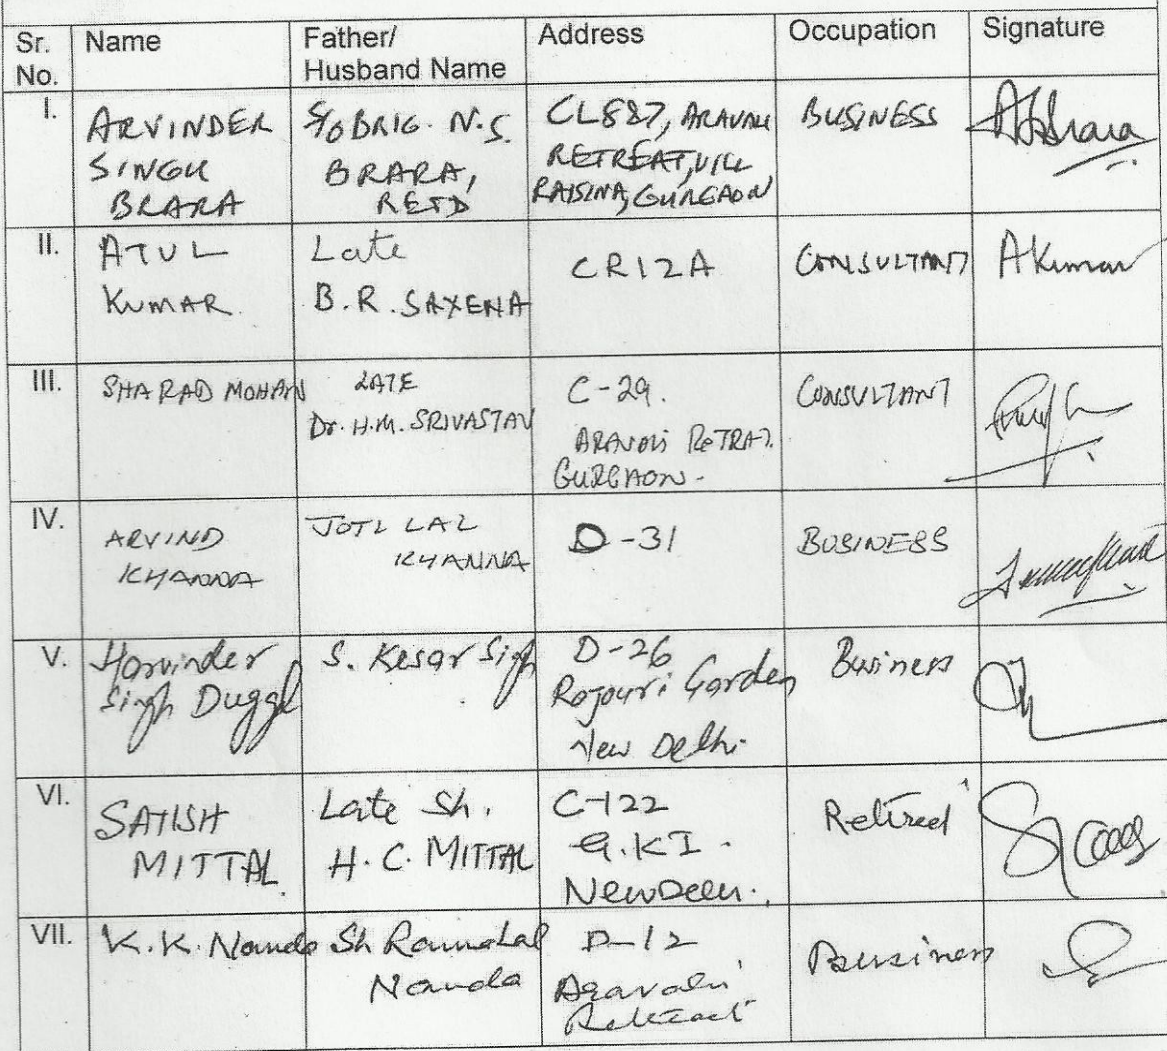 Sr. No. Name Father/ Husband Name Address Occupation Signature
I. ARVINDER SINGH BRARA S/O BRIG. N.S. BRARA, RETD CL887, ARAVALI RETREAT, VILL RAISINA, GURGAON BUSINESS
II. ATUL KUMAR Late B.R. SAXENA CR12A CONSULTANT AKumar
III. SHARAD MOHAN LATE Dr. H.M. SRIVASTAV C-29. ARAVALI RETRAT. GURGAON - CONSULTANT
IV. ARVIND KHANNA JOTI LAL KHANNA D-31 BUSINESS
V. Harvinder Singh Duggal S. Kesar Singh D-26 Rajouri Garden New Delhi. Business
VI. SATISH MITTAL Late Sh. H.C. MITTAL C-122 G.K I. New Delhi. Retired
VII. K.K. Nanda Sh Ramalal Nanda D-12 Aravali Retreat Business